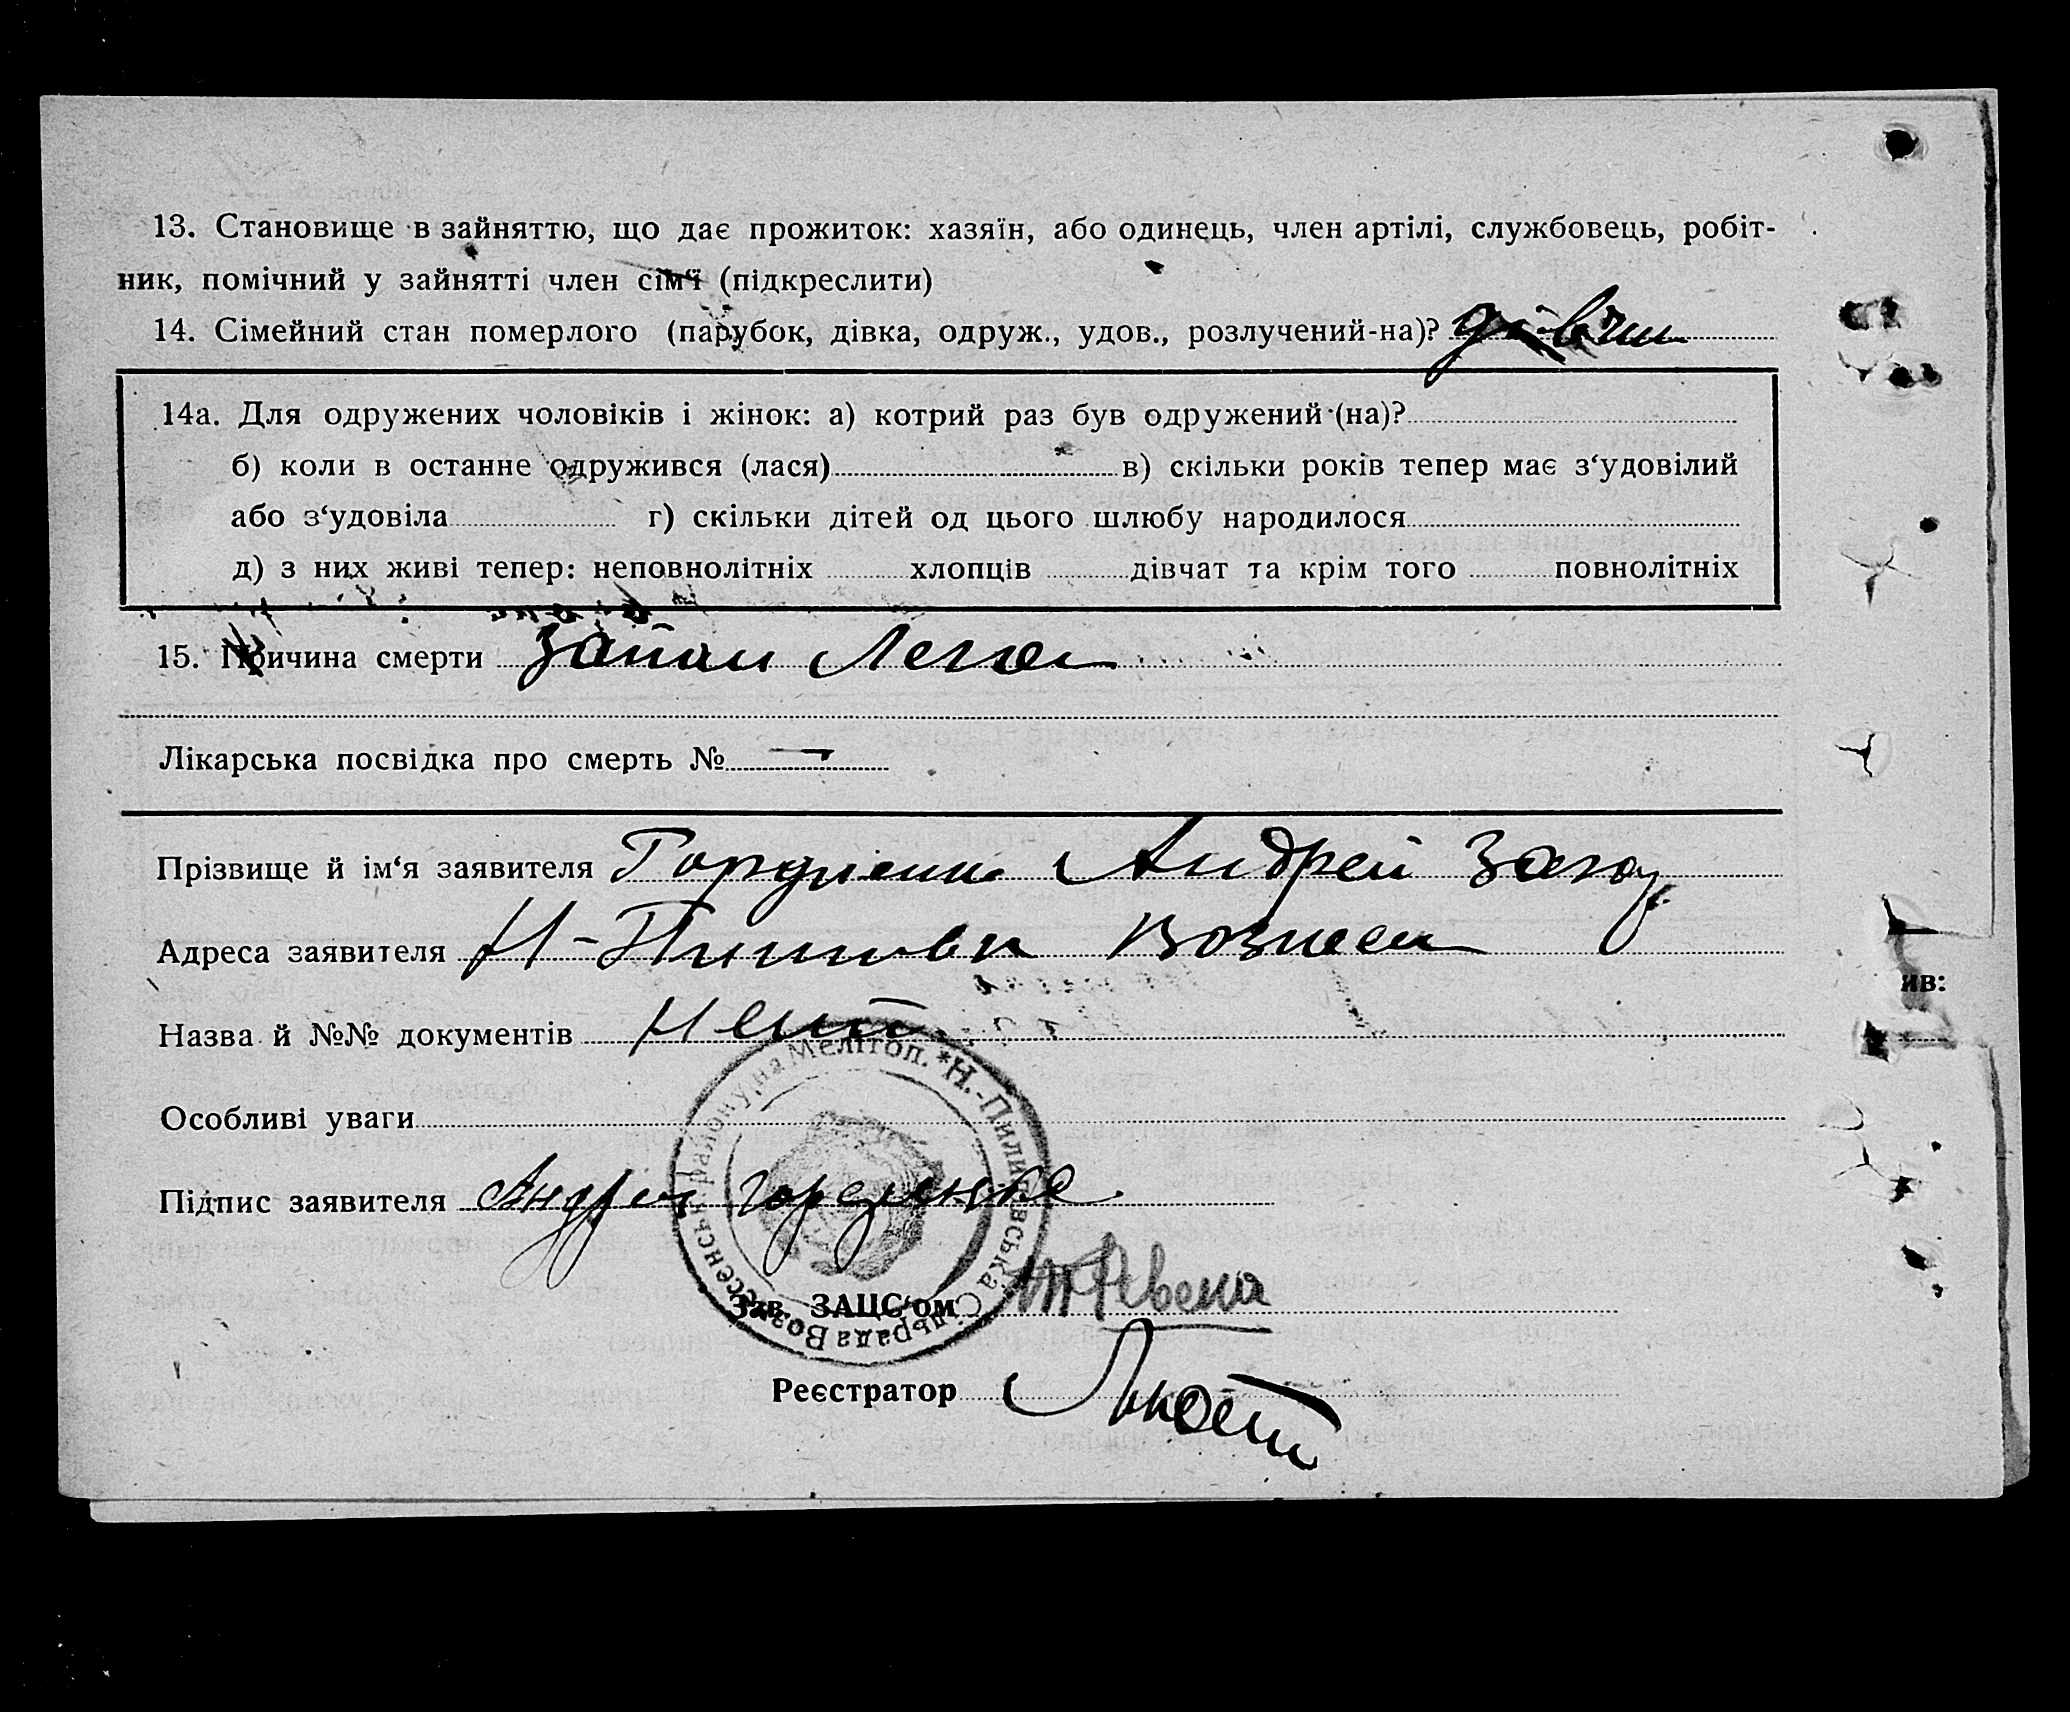 13. Становище в зайняттю, що дає прожиток: хазяїн, або одинець, член артілі, службовець, робіт-
ник, помічний у зайнятті член сім'ї (підкреслити)
14. Сімейний стан померлого (парубок, дівка, одруж., удов., розлучений-на)?
14а. Для одружених чоловіків і жінок: а) котрий раз був одружений (на)?
б) коли в останне одружився (лася) в) скільки років тепер має з‘удовілий
або з‘удовіла г) скільки дітей од цього шлюбу народилося
д) з них живі тепер: неповнолітніх хлопців дівчат та крім того повнолітніх
15. Причина смерти Запал Леген
Лікарська посвідка про смерть № —
Прізвище й ім‘я заявителя Гордиенко Андрей Заха
Адреса заявителя Н-Пилиповка Вознесен
ив:
Назва й №№ документів нет
Особливі уваги
Підпис заявителя Андрей гордиенко
Н.-Пилипівська Сільрада Вознесенськ. району на Мелітоп. *
Зав. ЗАЦС‘ом
Реєстратор